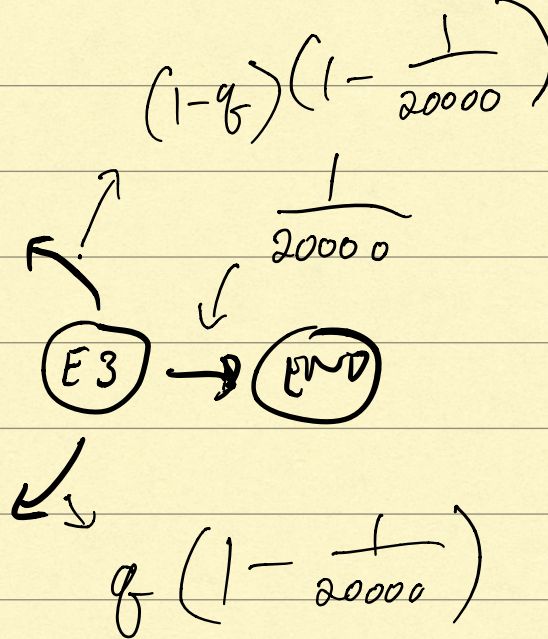 (1-q)(1-1/20000)
1/20000
E3
END
q(1-1/20000)